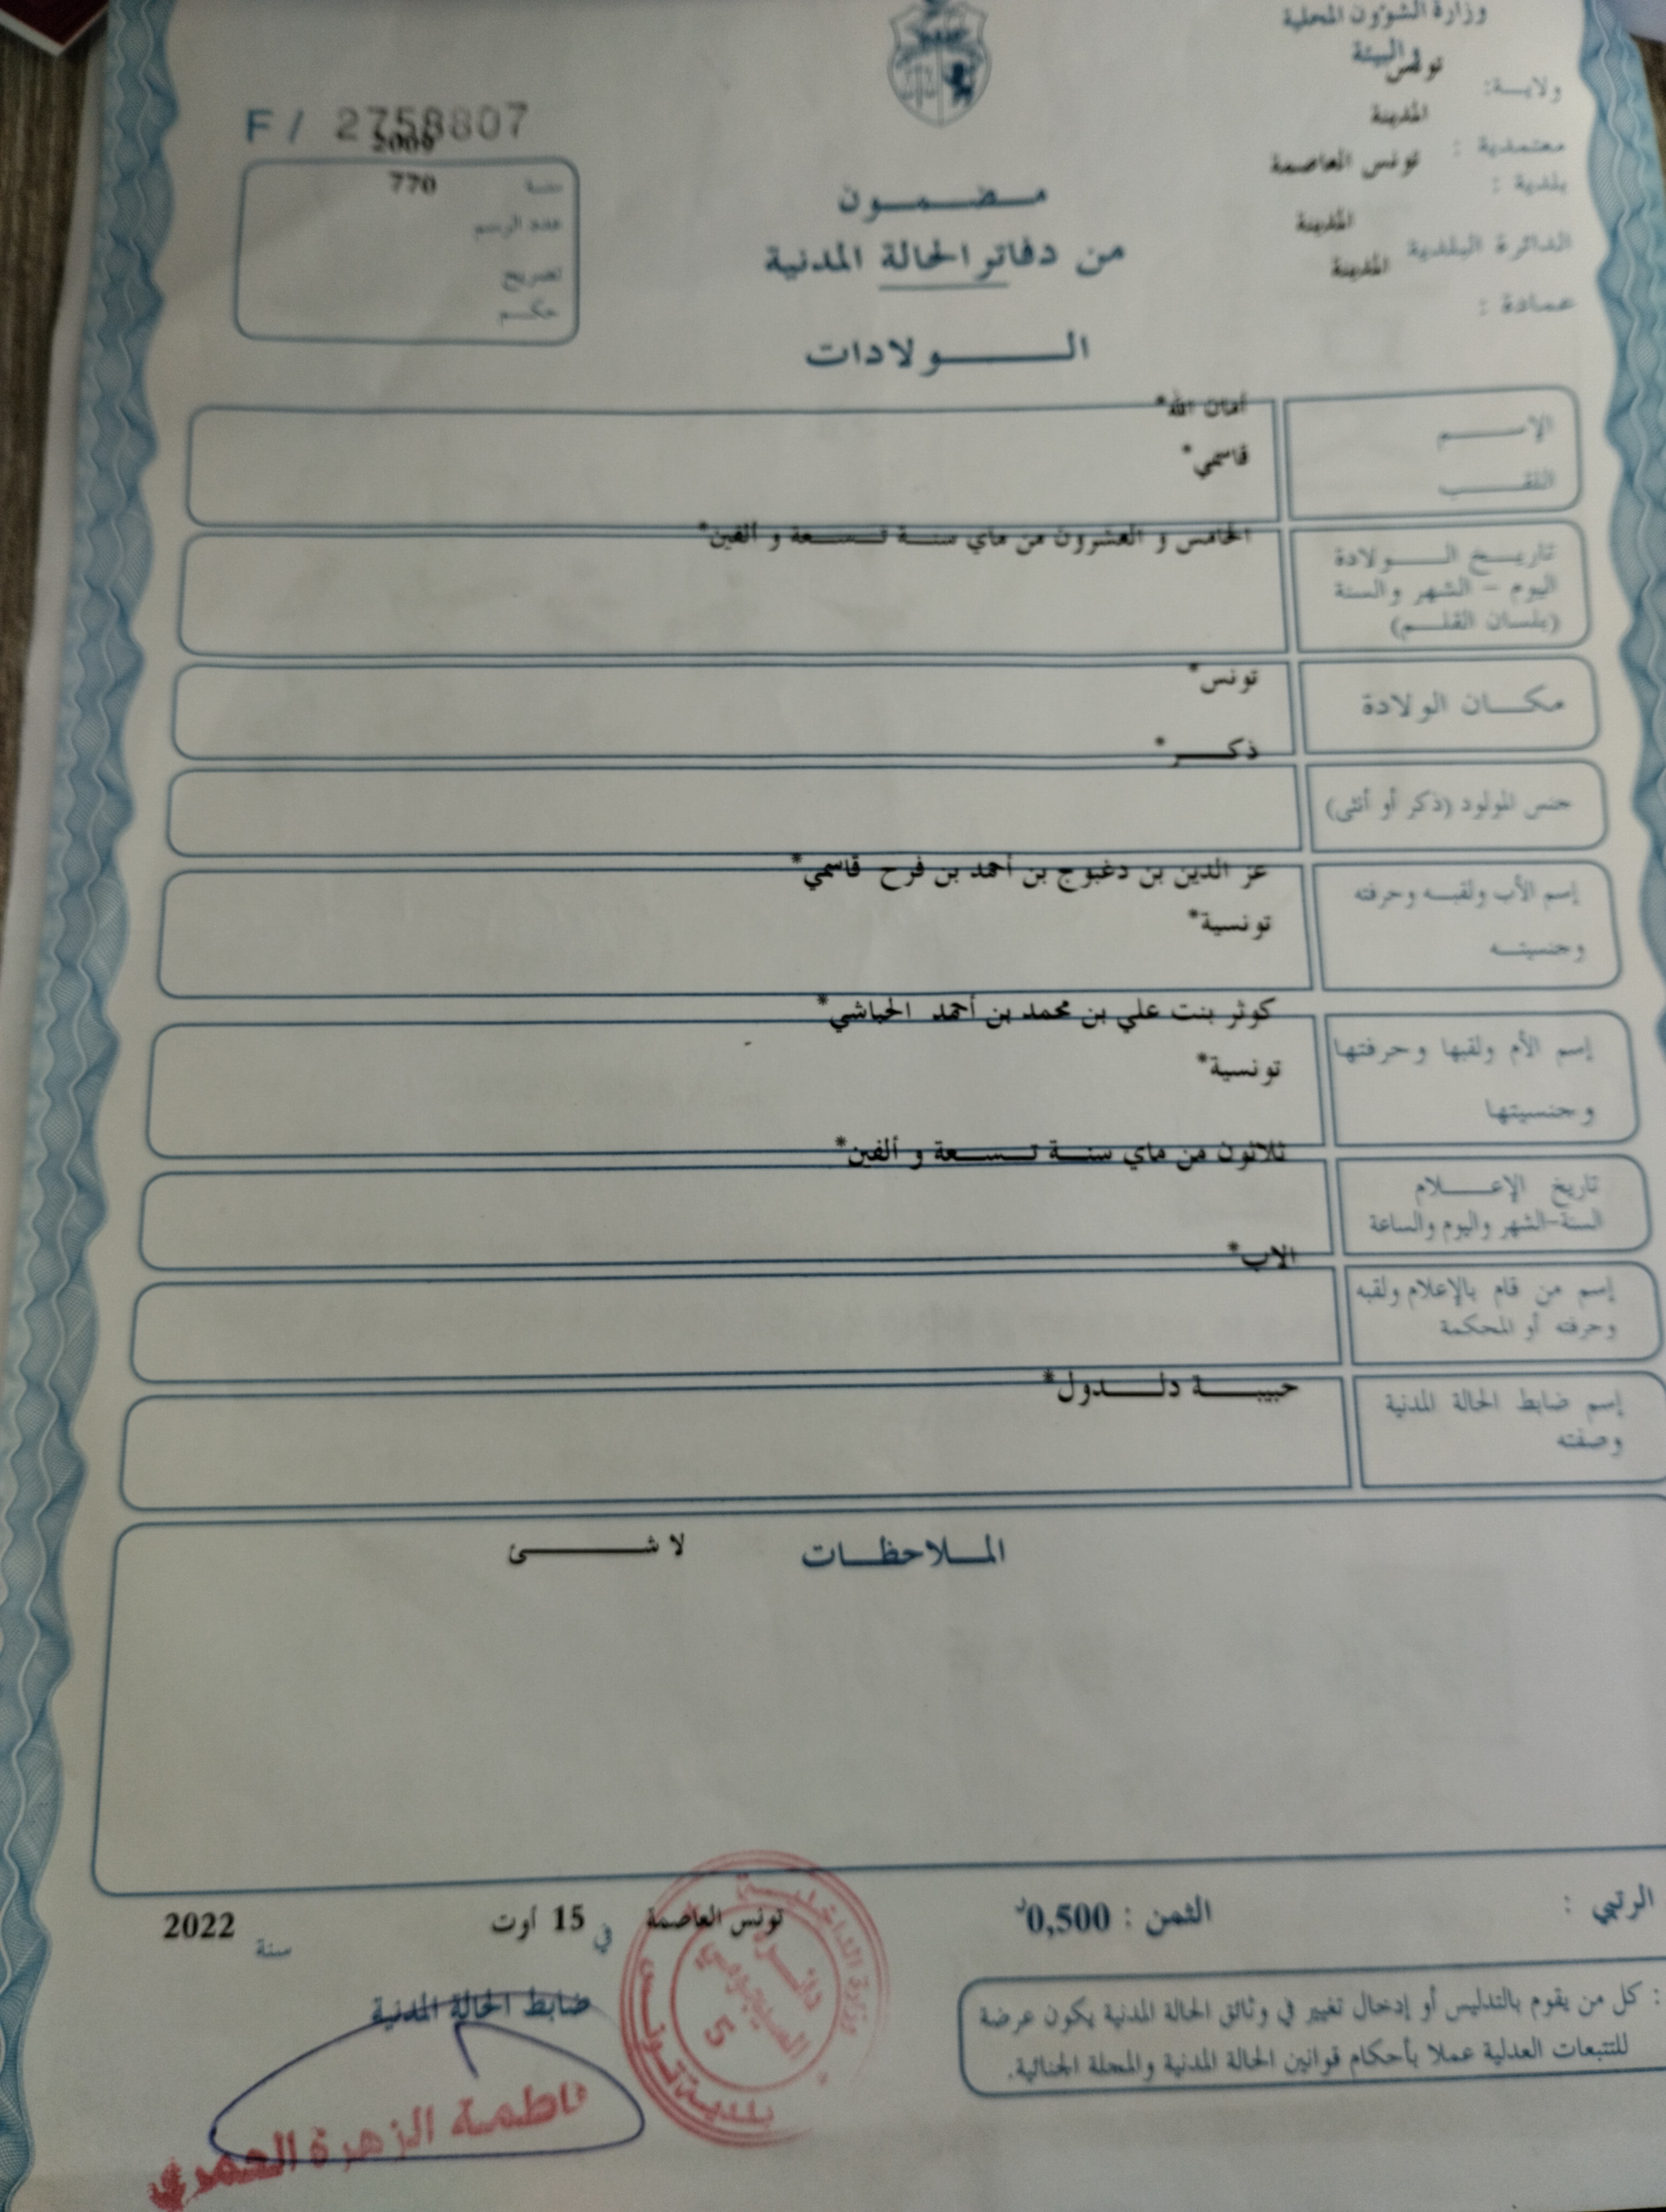 وزارة الشؤون المحلية
والبيئة
ولاية: تونس
معتمدية : المدينة
بلدية : تونس العاصمة
الدائرة البلدية المدينة
عمادة : المدينة
F / 2758807
سنة 2009
عدد الرسم 770
تصريح
حكم
مضمون
من دفاتر الحالة المدنية
الولادات
الإسم أمان الله*
اللقب قاسمي*
تاريخ الولادة
اليوم – الشهر والسنة
(بلسان القلم)
الخامس و العشرون من ماي سنة تسعة و ألفين*
مكان الولادة تونس*
جنس المولود (ذكر أو أنثى) ذكر*
إسم الأب ولقبه وحرفته
وجنسيته
عز الدين بن دغبوج بن أحمد بن فرح قاسمي*
تونسية*
إسم الأم ولقبها وحرفتها
وجنسيتها
كوثر بنت علي بن محمد بن أحمد الحباشي*
تونسية*
تاريخ الإعلام
السنة-الشهر واليوم والساعة
ثلاثون من ماي سنة تسعة و ألفين*
إسم من قام بالإعلام ولقبه
وحرفته أو المحكمة
الاب*
إسم ضابط الحالة المدنية
وصفته
حبيبة دلدول*
الملاحظات لا شئ
الرتبي :
الثمن : 0,500د
تونس العاصمة في 15 أوت سنة 2022
ضابط الحالة المدنية
: كل من يقوم بالتدليس أو إدخال تغيير في وثائق الحالة المدنية يكون عرضة
للتتبعات العدلية عملا بأحكام قوانين الحالة المدنية والمجلة الجنائية.
وزارة الداخلية
بلدية تونس
دائرة
السيجومي
5
فاطمة الزهرة العمري